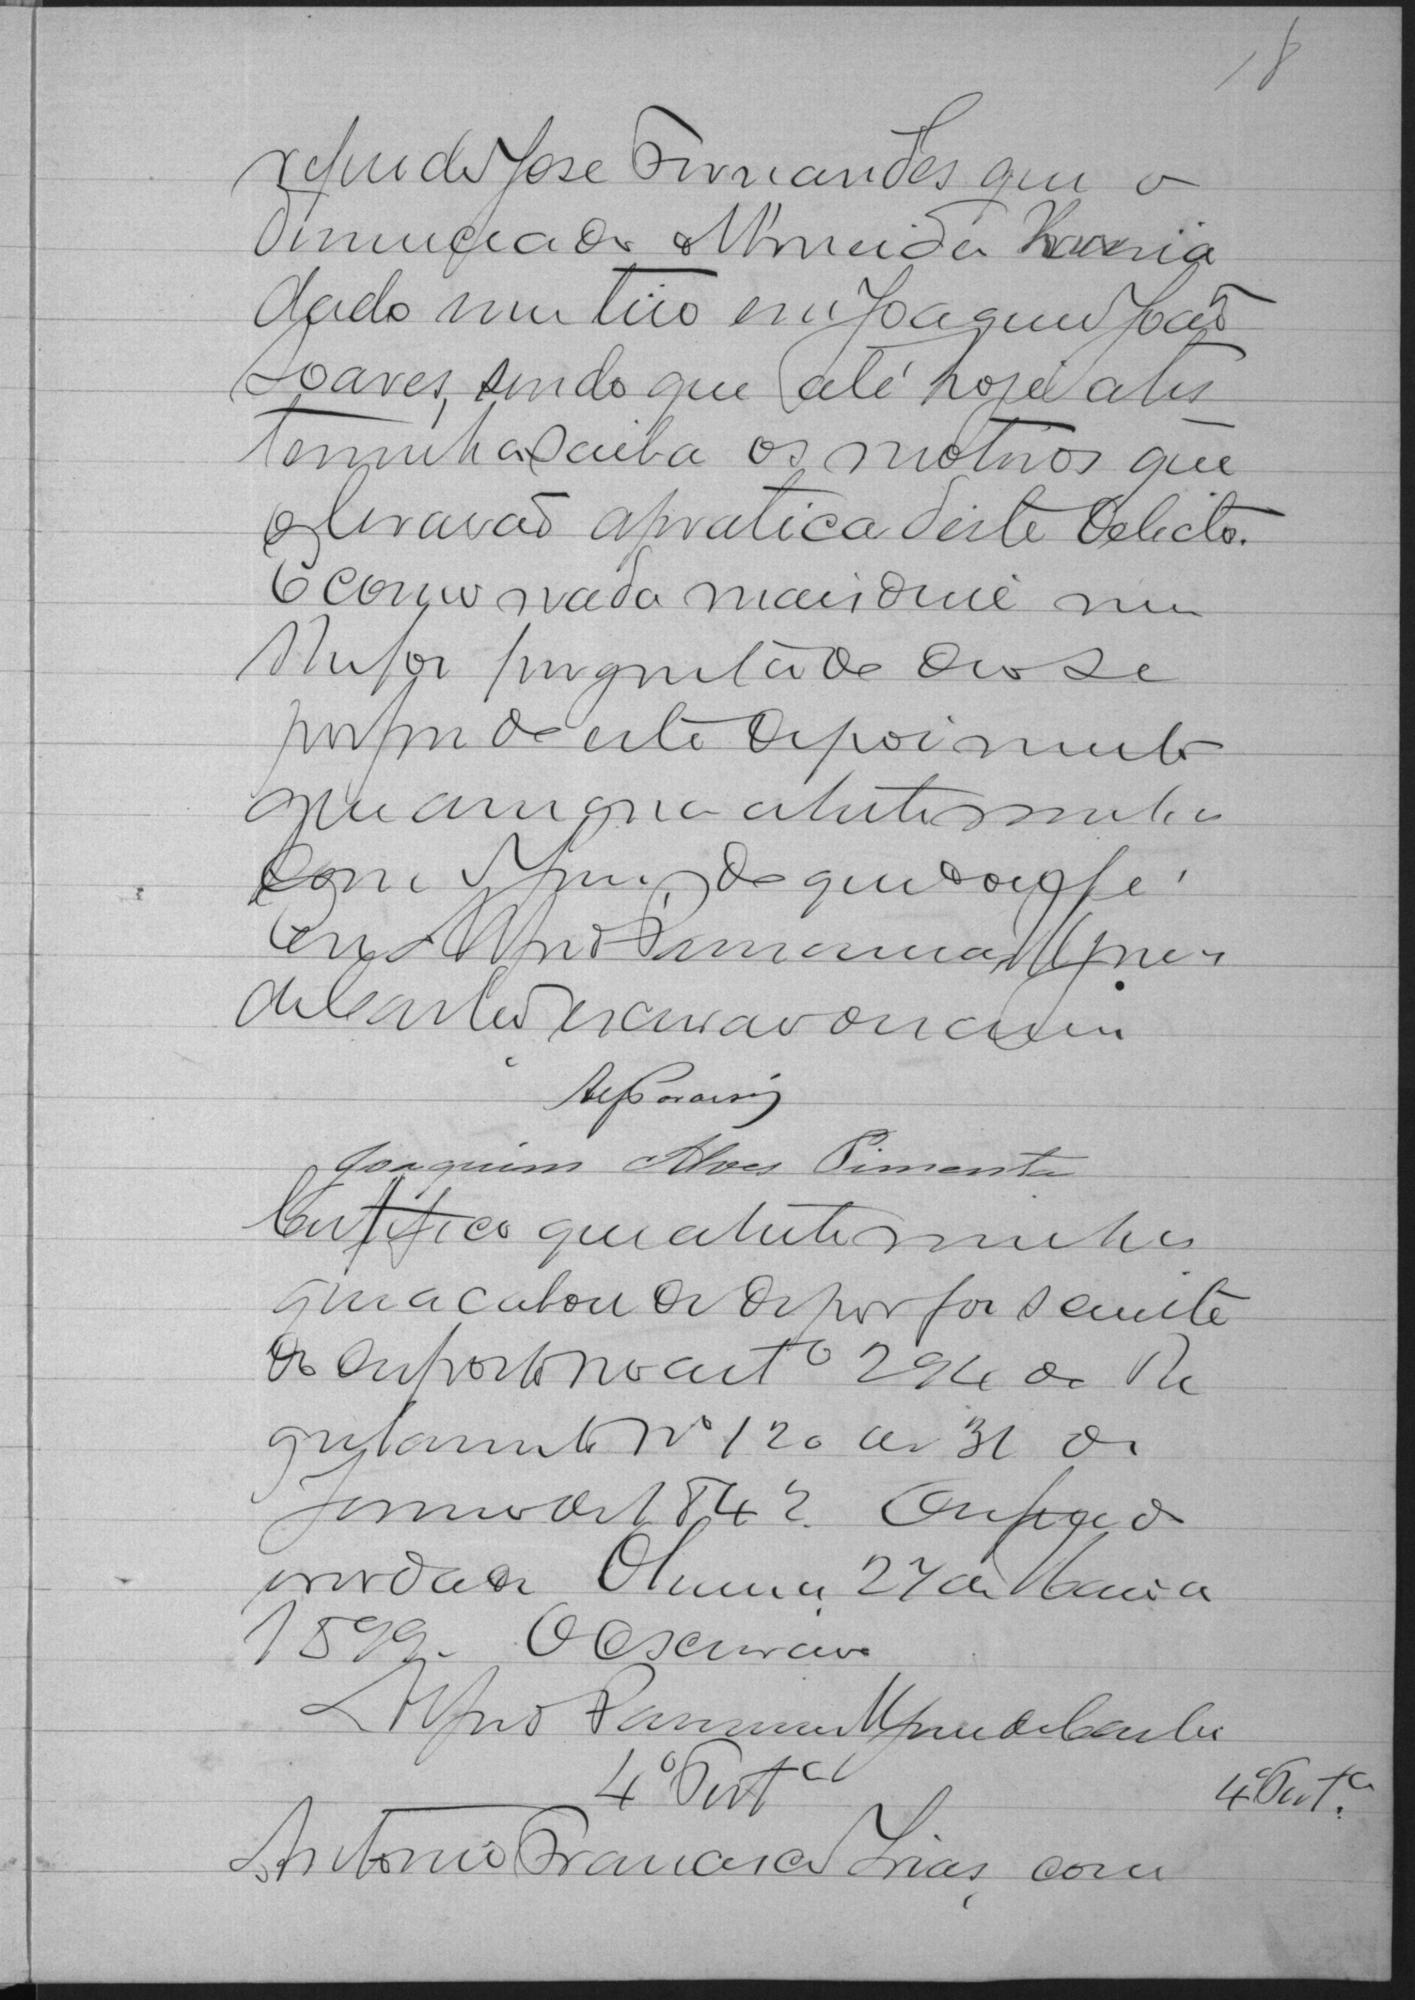 18
refindo Jose Fernandes que o
dinunciado Almeida havia
dado um tiro em Joaquim João
Soares, sendo que até hoje a tes
teminha saiba os motivos que
o levarão a pratica deste delicto.
E como nada mais disse nem
lhe foi perguntado deo se
por fim de este depoimento
que assigna a testeminha
com o Juiz, do que dou fé.
Eu, Alfredo
de Castro escrivão escrevi
Joaquim Alves Pimenta
Certifico que a testeminha
que acabou de depor foi sciente
do disposto no art.º 294 do Re
gulamento nº 120 de 31 de
Janeiro de 1842. Dou fé
verdade 27 de Março
1899. O Escrivão
Alfredo de Castro
4ª Test.ª
4ª Test.ª
Antonio Francisco Dias, com